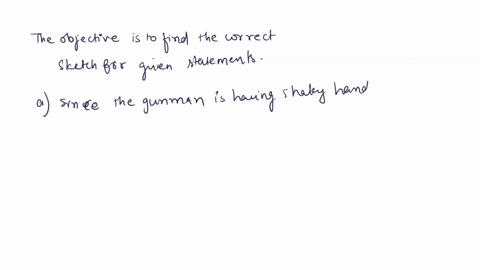 The objective is to find the correct
sketch for given statements.
a) since the gunman is having shaky hand